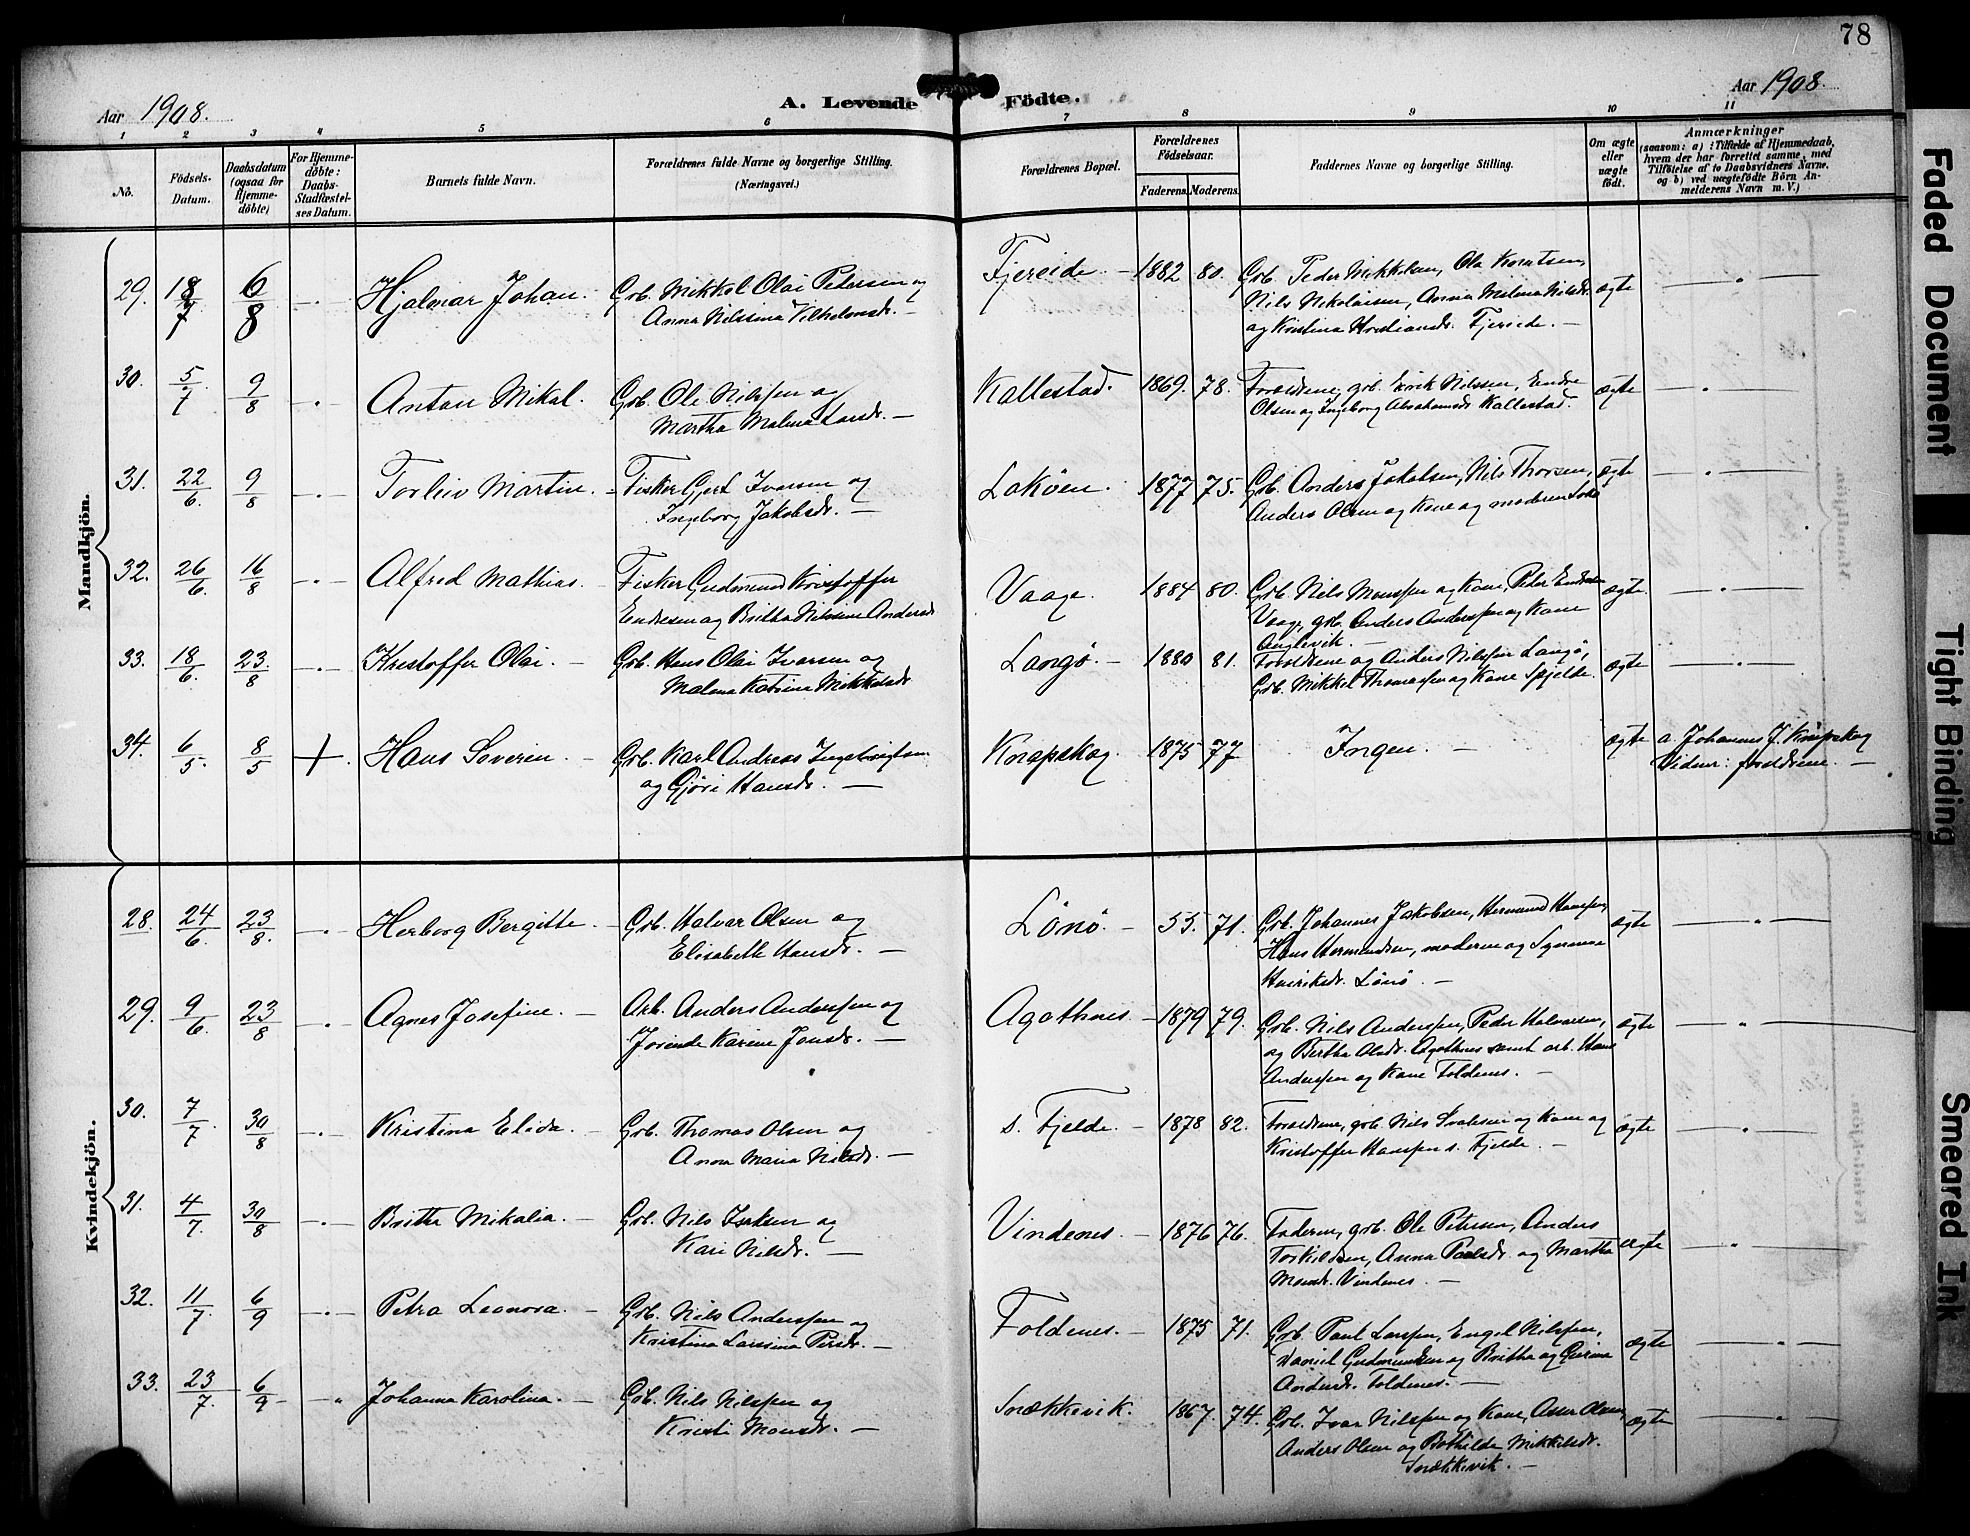 78
Aar 1908.
A. Levende Födte.
Aar 1908.
1 2 3 4 5 6 7 8 9 10 11
No.
Födsels-Datum.
Daabsdatum (ogsaa for Hjemme-döbte)
For Hjemme-döbte: Daabs-Stadfæstel-ses Datum.
Barnets fulde Navn.
Forældrenes fulde Navne og borgerlige Stilling.
(Næringsvei.)
Forældrenes Bopæl.
Forældrenes Födselsaar.
Faderens. Moderens.
Faddernes Navne og borgerlige Stilling.
Om ægte eller uægte födt.
Anmærkninger
(saasom: a) i Tilfælde af Hjemmedaab,
hvem der har forrettet samme, med
Tilföielse af to Daabsvidners Navne,
og b) ved uægtefödte Börn An-
melderens Navn m. V.)
Mandkjön.
29. 18/7 6/8 Hjalmar Johan. Grb. Mikkel Olai Petersen og
Anna Nilssina Vilhelmsdr. —
Fjereide. — 1882 80. Grb. Peder Mikkelsen, Ola Knutsen,
Nils Nikolaisen, Anna Malena Nilsdr.
og Kristina Kristiansdr. Fjereide. —
ægte
30. 5/7 9/8 Anton Mikal. Grb. Ole Nilssen og
Martha Malena Larsdr. —
Kallestad. 1869. 78. Forældrene, grb. Erik Nilssen, Endre
Olsen og Ingeborg Abrahamsdr. Kallestad.
ægte
31. 22/6 9/8 Torleiv Martin. — Fisker Gert Iversen og
Ingeborg Jakobsdr. —
Lokøen. 1877 75. Grb. Anders Jakobsen, Nils Thorsen,
Anders Olsen og Kone og moderen
ægte
32. 26/6 16/8 Alfred Mathias. — Fisker Gudmund Kristoffer
Endresen og Britha Nilsine Andersdr.
Vaage. 1884 80. Grb. Nils Monssen og Kone, Peder Endresen
Vaage, grb. Anders Anderssen og Kone
Anglevik. —
ægte.
33. 18/6 23/8 Kristoffer Olai. — Grb. Hans Olai Ivarsen og
Malena Katrina Mikkelsdr
Langö. — 1880 81. Forældrene og Anders Nilssen Langö,
Grb. Mikkel Thomassen og Kone Spjelde.
ægte
34. 6/5. 8/5 + Hans Severin. — Grb. Karl Andreas Ingebrigtsen
og Gjöri Hansdr. —
Knapskog. 1875 77 Ingen. — ægte a. Johannes J. Knapskog
Vidner: forældrene. —
Kvindekjön.
28. 24/6. 23/8. Herborg Bergitte. — Grb. Halvar Olsen og
Elisabeth Hansdr. —
Lönö. — 55. 71. Grb. Johannes Jakobsen, Hermund Hanssen,
Hans Hermundsen, moderen og Synneva
Henriksdr. Lönö. —
ægte
29. 9/6 23/8 Agnes Josefine. — Arb. Anders Anderssen og
Jorinde Karine Jonsdr. —
Agothnes — 1879 79. Grb. Nils Anderssen, Peder Halvorsen,
og Bertha Olsdr. Agothnes samt arb. Hans
Anderssen og Kone Foldenes. —
ægte
30. 7/7 30/8 Kristina Elida. — Grb. Thomas Olsen og
Anna Maria Nilsdr. —
s. Fjelde. — 1878 82. Forældrene, grb. Nils og Kone og
Kristoffer Hanssen s. Fjelde. —
ægte
31. 4/7. 30/8 Britha Mikalia. — Grb. Nils Isaksen og
Kari Nilsdr. —
Vindenes. — 1876 76. Faderen, grb. Ole Petersen, Anders
Torkildsen, Anna Paulsdr. og Martha
Monsdr. Vindenes. —
ægte
32. 11/7 6/9 Petra Leonora. — Grb. Nils Anderssen og
Kristina Larsina Persdr. —
Foldenes. — 1875 71. Grb. Paul Larssen, Engel Nilssen,
Daniel Gudmundsen og Britha og Gurina
Andersdr. Foldenes. —
ægte
33. 23/7. 6/9 Johanna Karolina. — Grb. Nils Nilssen og
Kristi Monsdr. —
Snekkevik. 1867. 74. Grb. Ivar Nilssen og Kone, Olsen,
Anders Olsen og Bothilde Mikkelsdr.
Snekkevik. —
ægte
Faded Document
Tight Binding
Smeared Ink